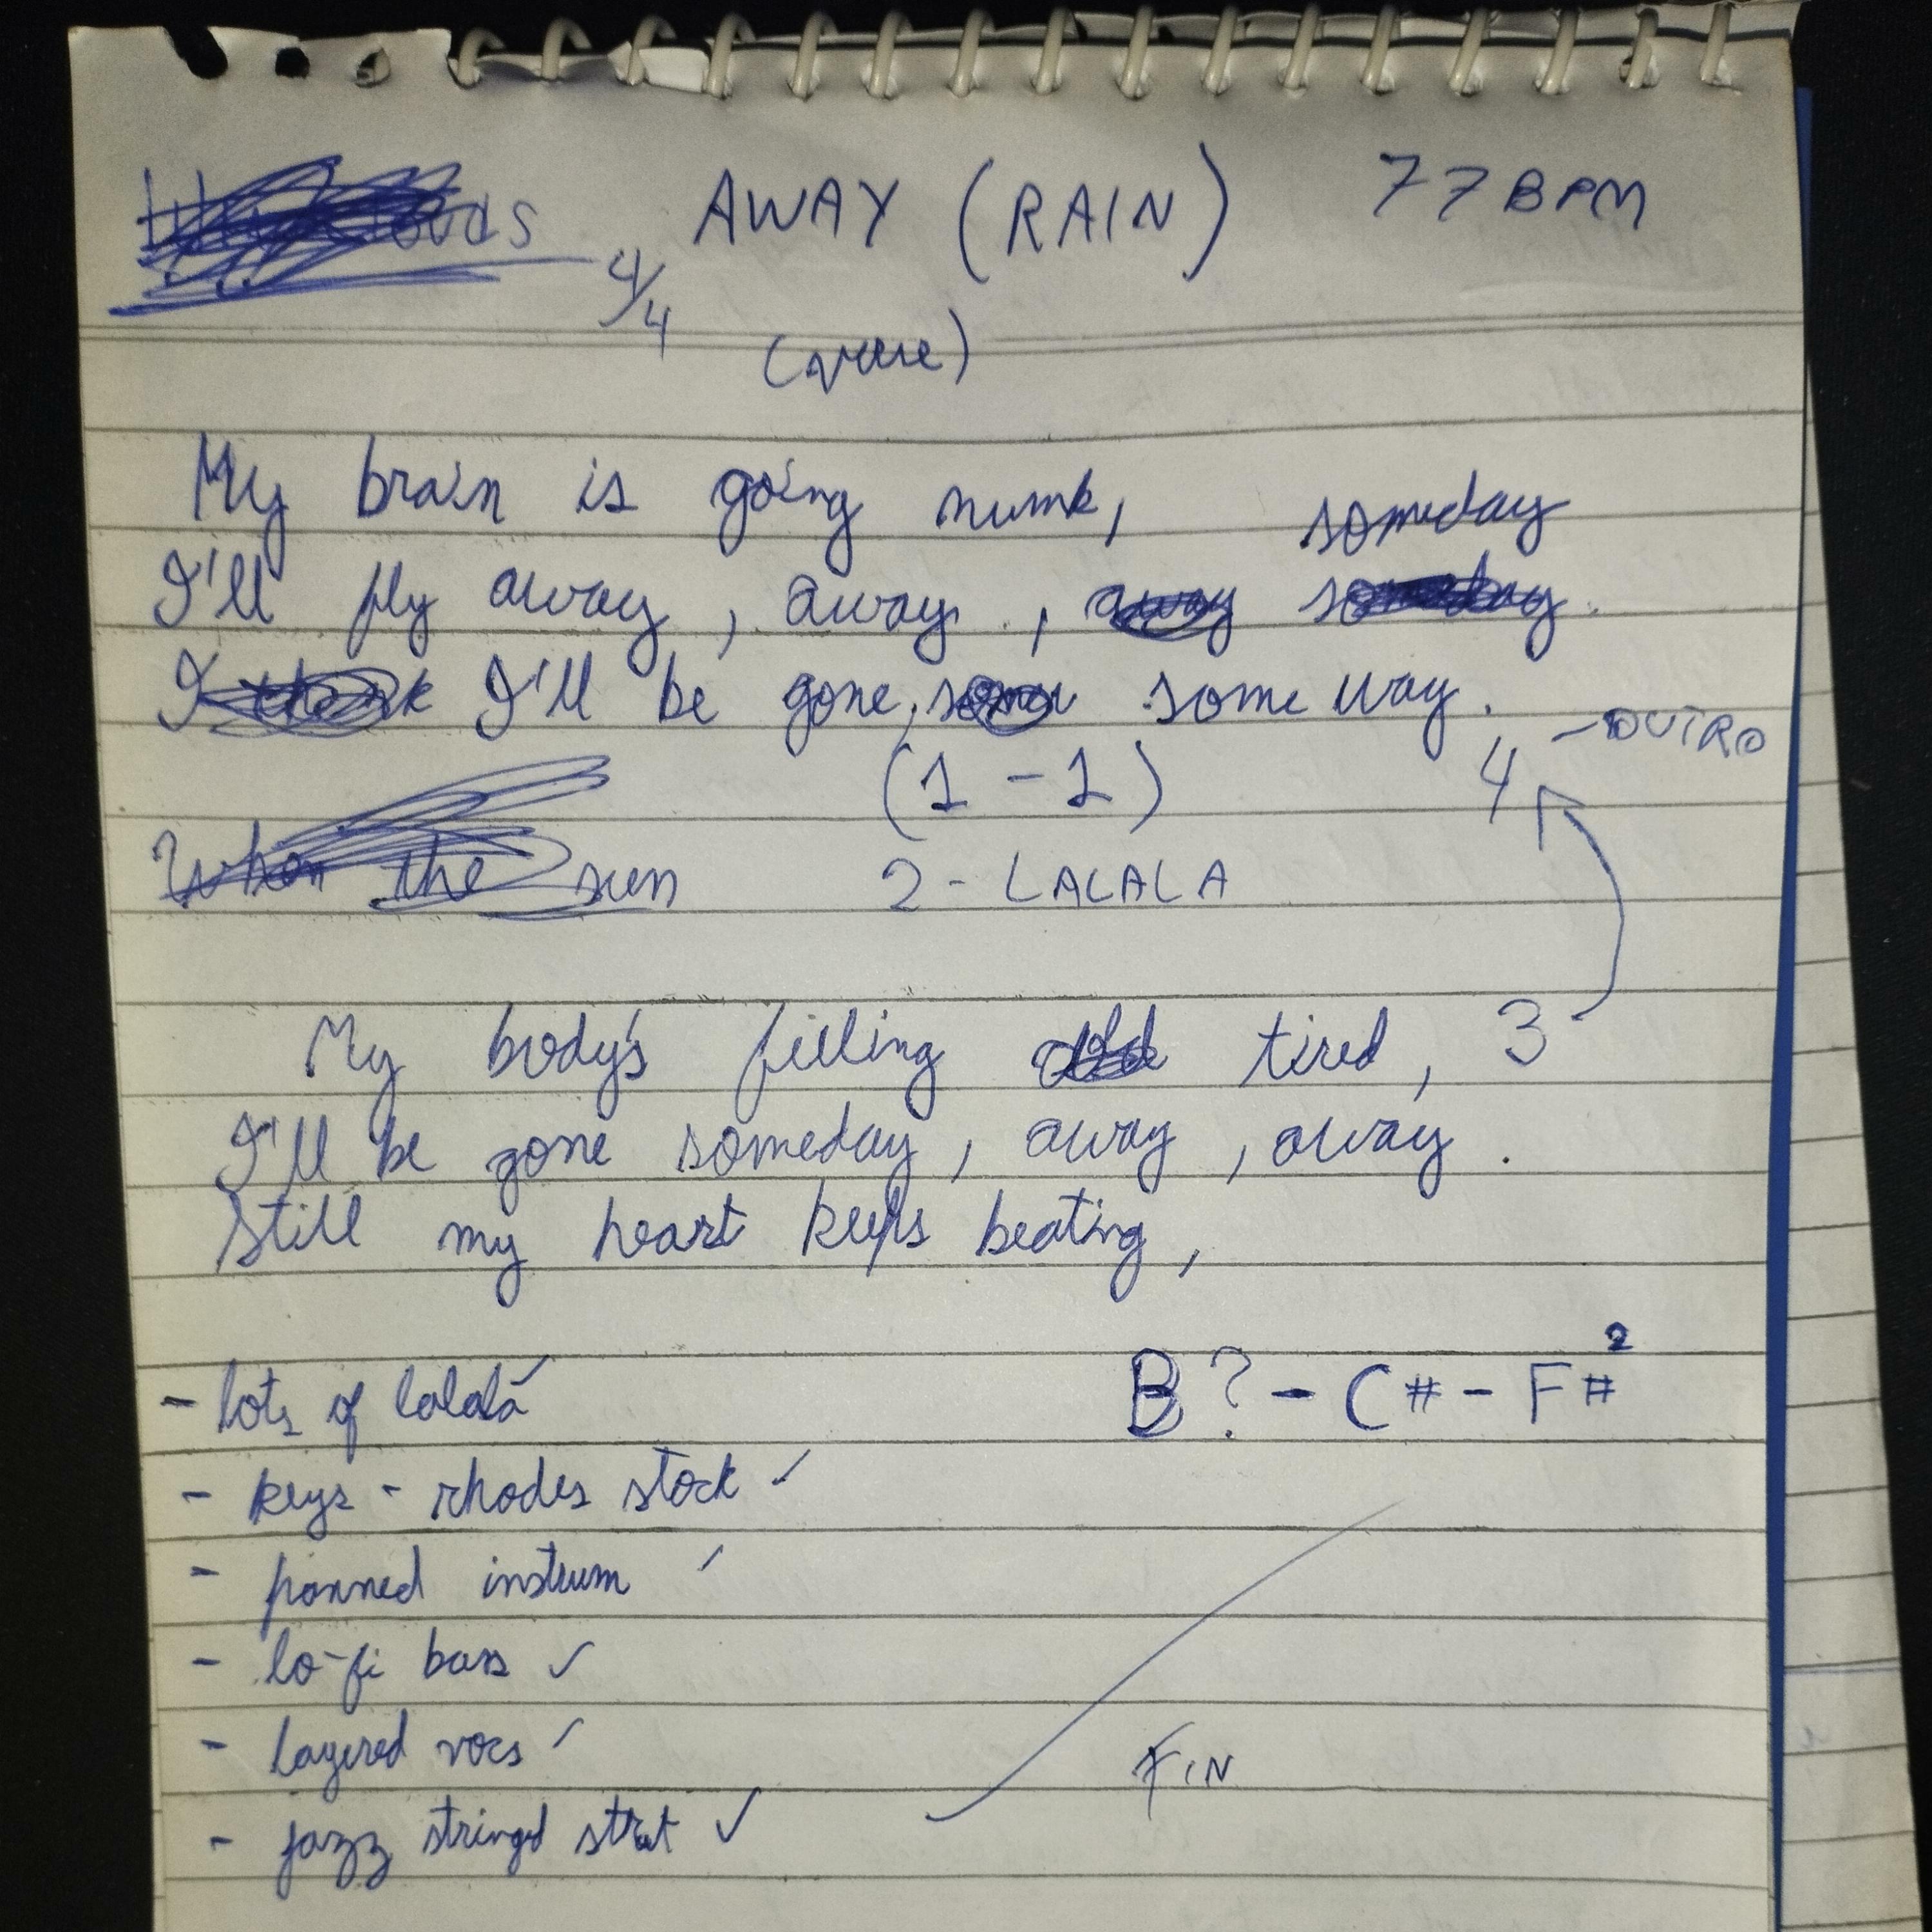 AWAY (RAIN) 77 BPM
4/4
(verse)
My brain is going numb, someday
I'll fly away, away, away someday.
I think I'll be gone, some way.
(1 - 1) 4 - OUTRO
When the sun 2 - LALALA
My body's filling old tired, 3
I'll be gone someday, away, away.
Still my heart keeps beating,
B? - C# - F#²
- lots of lalala ✓
- keys - rhodes stock ✓
- panned instrum ✓
- lo-fi bass ✓
- layered vocs ✓
FIN
- jazz stringed strat ✓